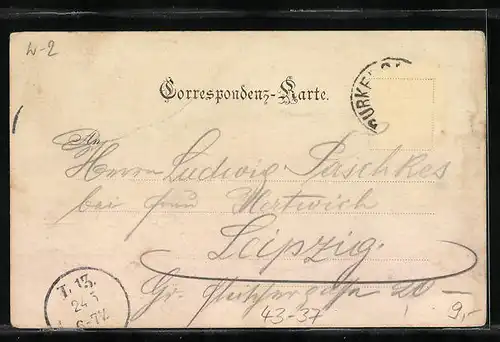 W-2
Correspondenz-Karte.
BURKE
An
Herrn Ludwig Paschkes
bei Frau Hertwich
Leipzig.
T. 13.
24 5
6-7½
Gr. Fleischergasse 20
43-37
9,-